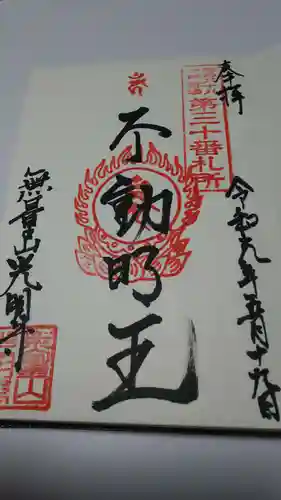 奉拝
第三十番札所
令和元年五月十九日
不動明王
無量山光明寺